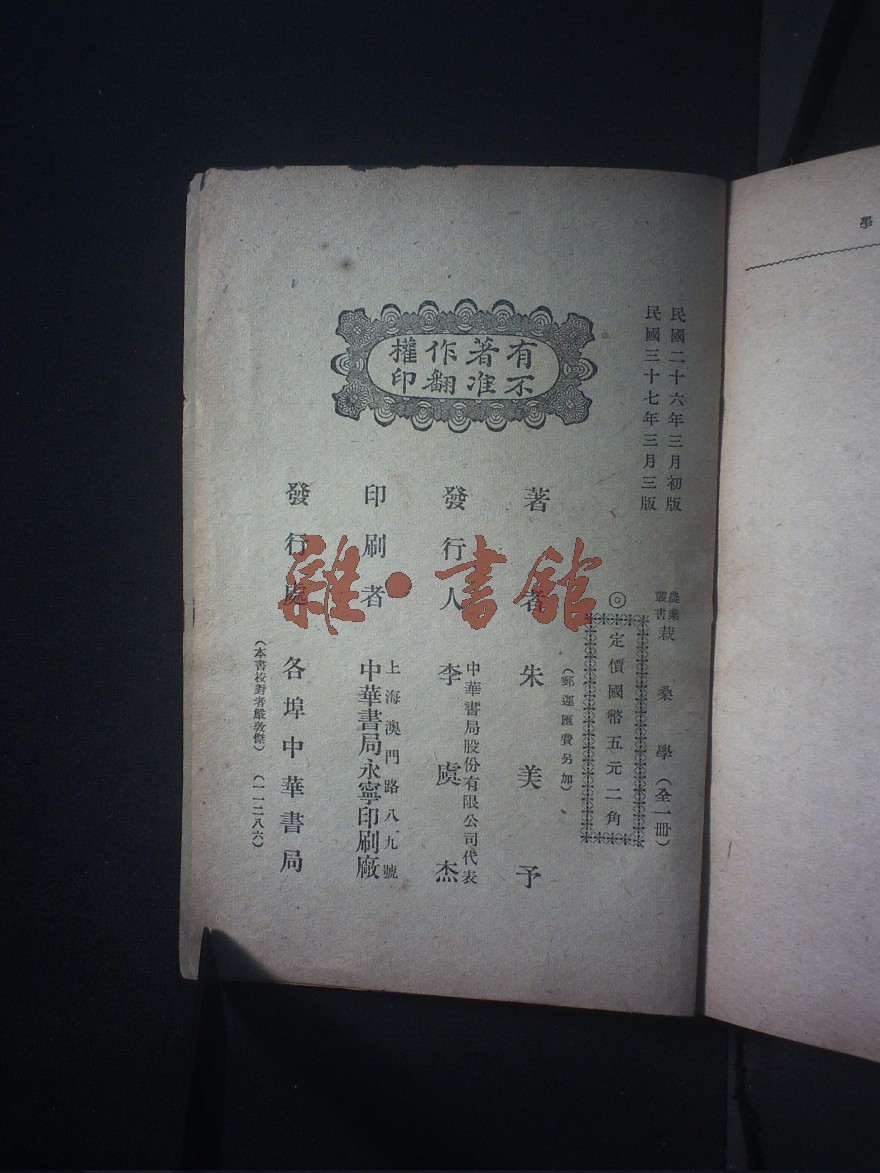 民國二十六年三月初版
民國三十七年三月三版
農業叢書 栽桑學（全一冊）
◎定價國幣五元二角
（郵運匯費另加）
有著作權
不准翻印
著者 朱美予
發行人 中華書局股份有限公司代表
李虞杰
印刷者 上海澳門路八九號
中華書局永寧印刷廠
發行處 各埠中華書局
（本書校對者嚴敦傑）（一一二八六）
學
雜·書館